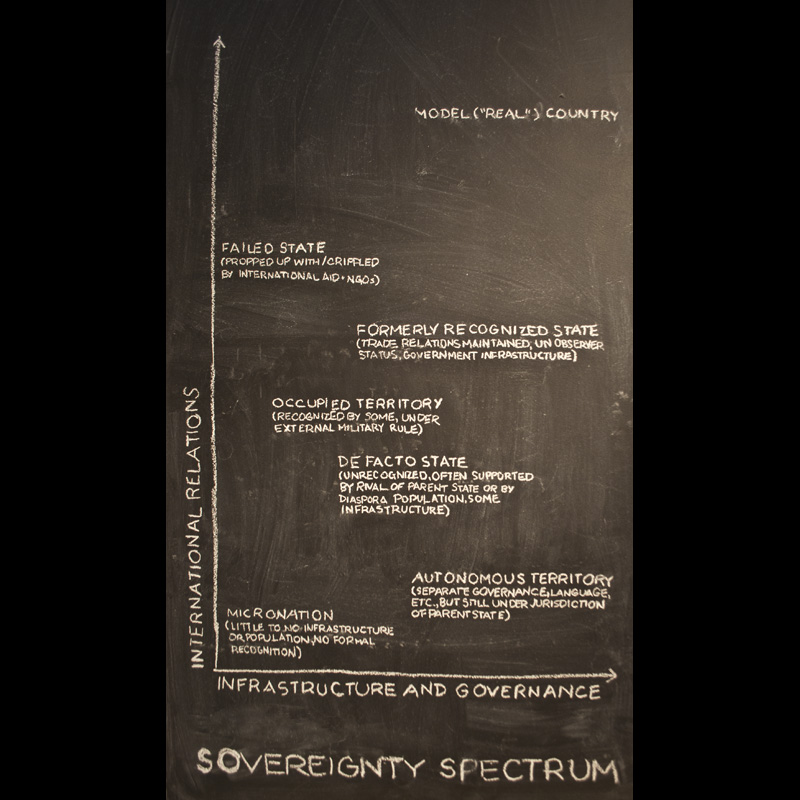 MODEL ("REAL") COUNTRY
FAILED STATE
(PROPPED UP WITH/CRIPPLED
BY INTERNATIONAL AID+NGOs)
FORMERLY RECOGNIZED STATE
(TRADE RELATIONS MAINTAINED, UN OBSERVER
STATUS, GOVERNMENT INFRASTRUCTURE)
OCCUPIED TERRITORY
(RECOGNIZED BY SOME, UNDER
EXTERNAL MILITARY RULE)
DE FACTO STATE
(UNRECOGNIZED, OFTEN SUPPORTED
BY RIVAL OF PARENT STATE OR BY
DIASPORA POPULATION, SOME
INFRASTRUCTURE)
AUTONOMOUS TERRITORY
(SEPARATE GOVERNANCE, LANGUAGE,
ETC., BUT STILL UNDER JURISDICTION
OF PARENT STATE)
MICRONATION
(LITTLE TO NO INFRASTRUCTURE
OR POPULATION, NO FORMAL
RECOGNITION)
INTERNATIONAL RELATIONS
INFRASTRUCTURE AND GOVERNANCE
SOVEREIGNTY SPECTRUM